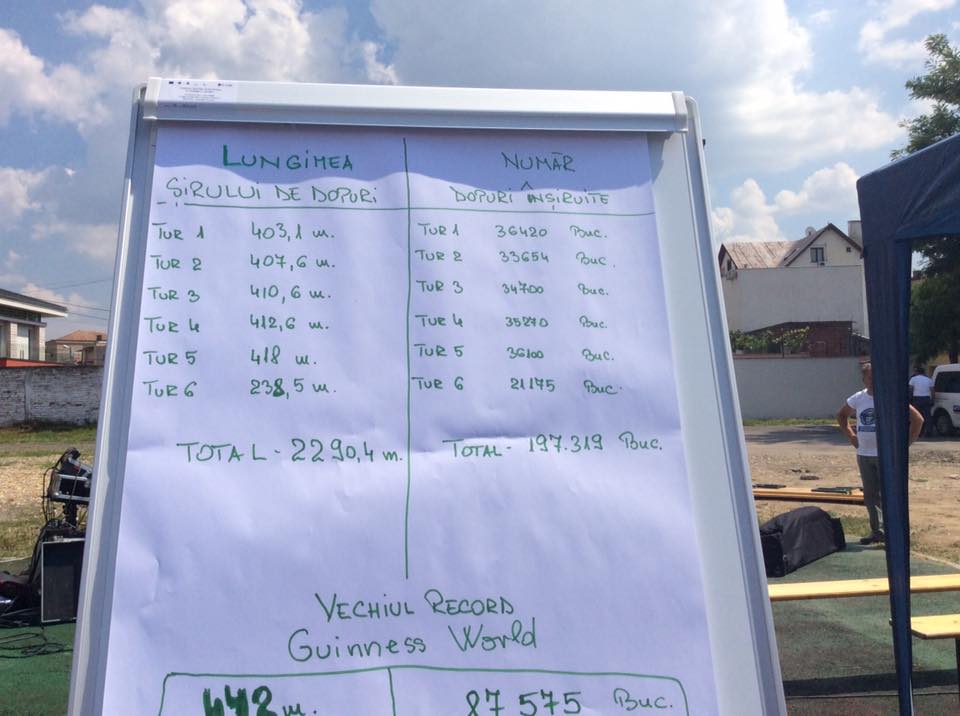 LUNGIMEA
ȘIRULUI DE DOPURI
TUR 1 403,1 m.
TUR 2 407,6 m.
TUR 3 410,6 m.
TUR 4 412,6 m.
TUR 5 418 m.
TUR 6 238,5 m.
TOTAL - 2290,4 m.
NUMĂR
DOPURI ÎNȘIRUITE
TUR 1 36420 Buc.
TUR 2 33654 Buc.
TUR 3 34700 Buc.
TUR 4 35270 Buc.
TUR 5 36100 Buc.
TUR 6 21175 Buc.
TOTAL - 197.319 Buc.
VECHIUL RECORD
Guinness World
442 m. 87 575 Buc.